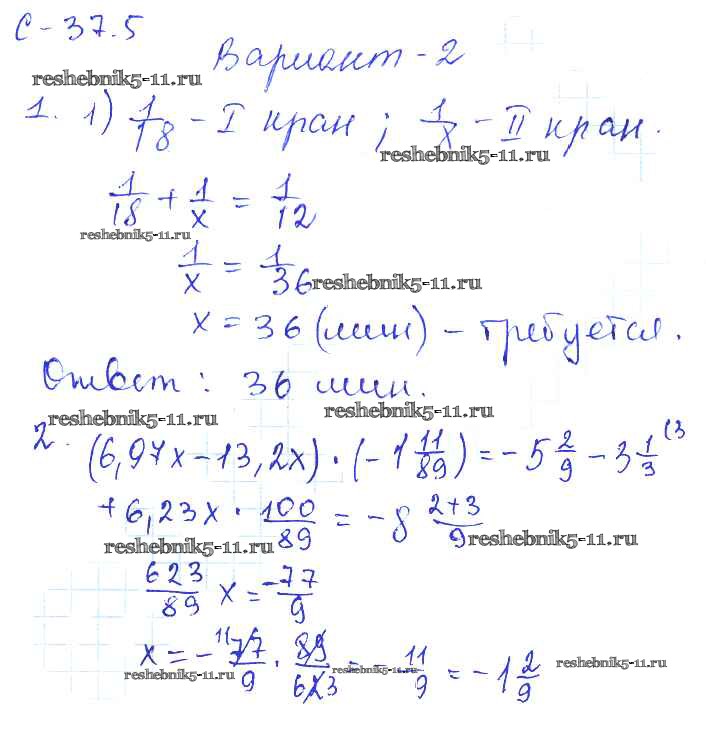 С-37.5
Вариант-2
reshebnik5-11.ru
1. 1) 1/18 - I кран ; 1/x - II кран.
reshebnik5-11.ru
1/18 + 1/x = 1/12
reshebnik5-11.ru
1/x = 1/36
reshebnik5-11.ru
x = 36 (мин) - требуется.
Ответ: 36 мин.
reshebnik5-11.ru
reshebnik5-11.ru
2. (6,97x - 13,2x) · (-1 11/89) = -5 2/9 - 3 1/3 (3
+ 6,23x · 100/89 = -8 2+3/9
reshebnik5-11.ru
reshebnik5-11.ru
623/89 x = -77/9
x = - 11 77/9 · 89/623 = - 11/9 = -1 2/9
reshebnik5-11.ru
reshebnik5-11.ru
reshebnik5-11.ru